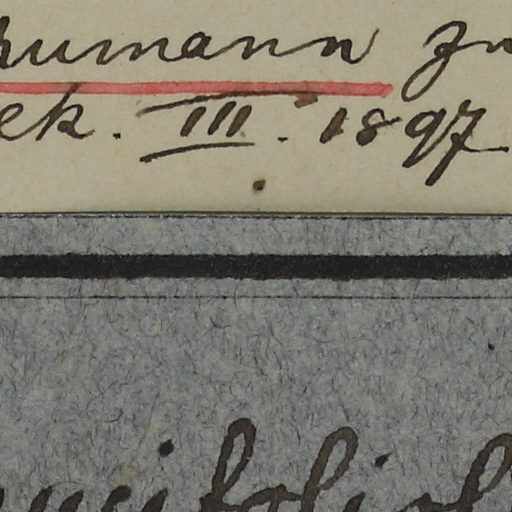 humann zu
ek. III. 1897
ucifoliol